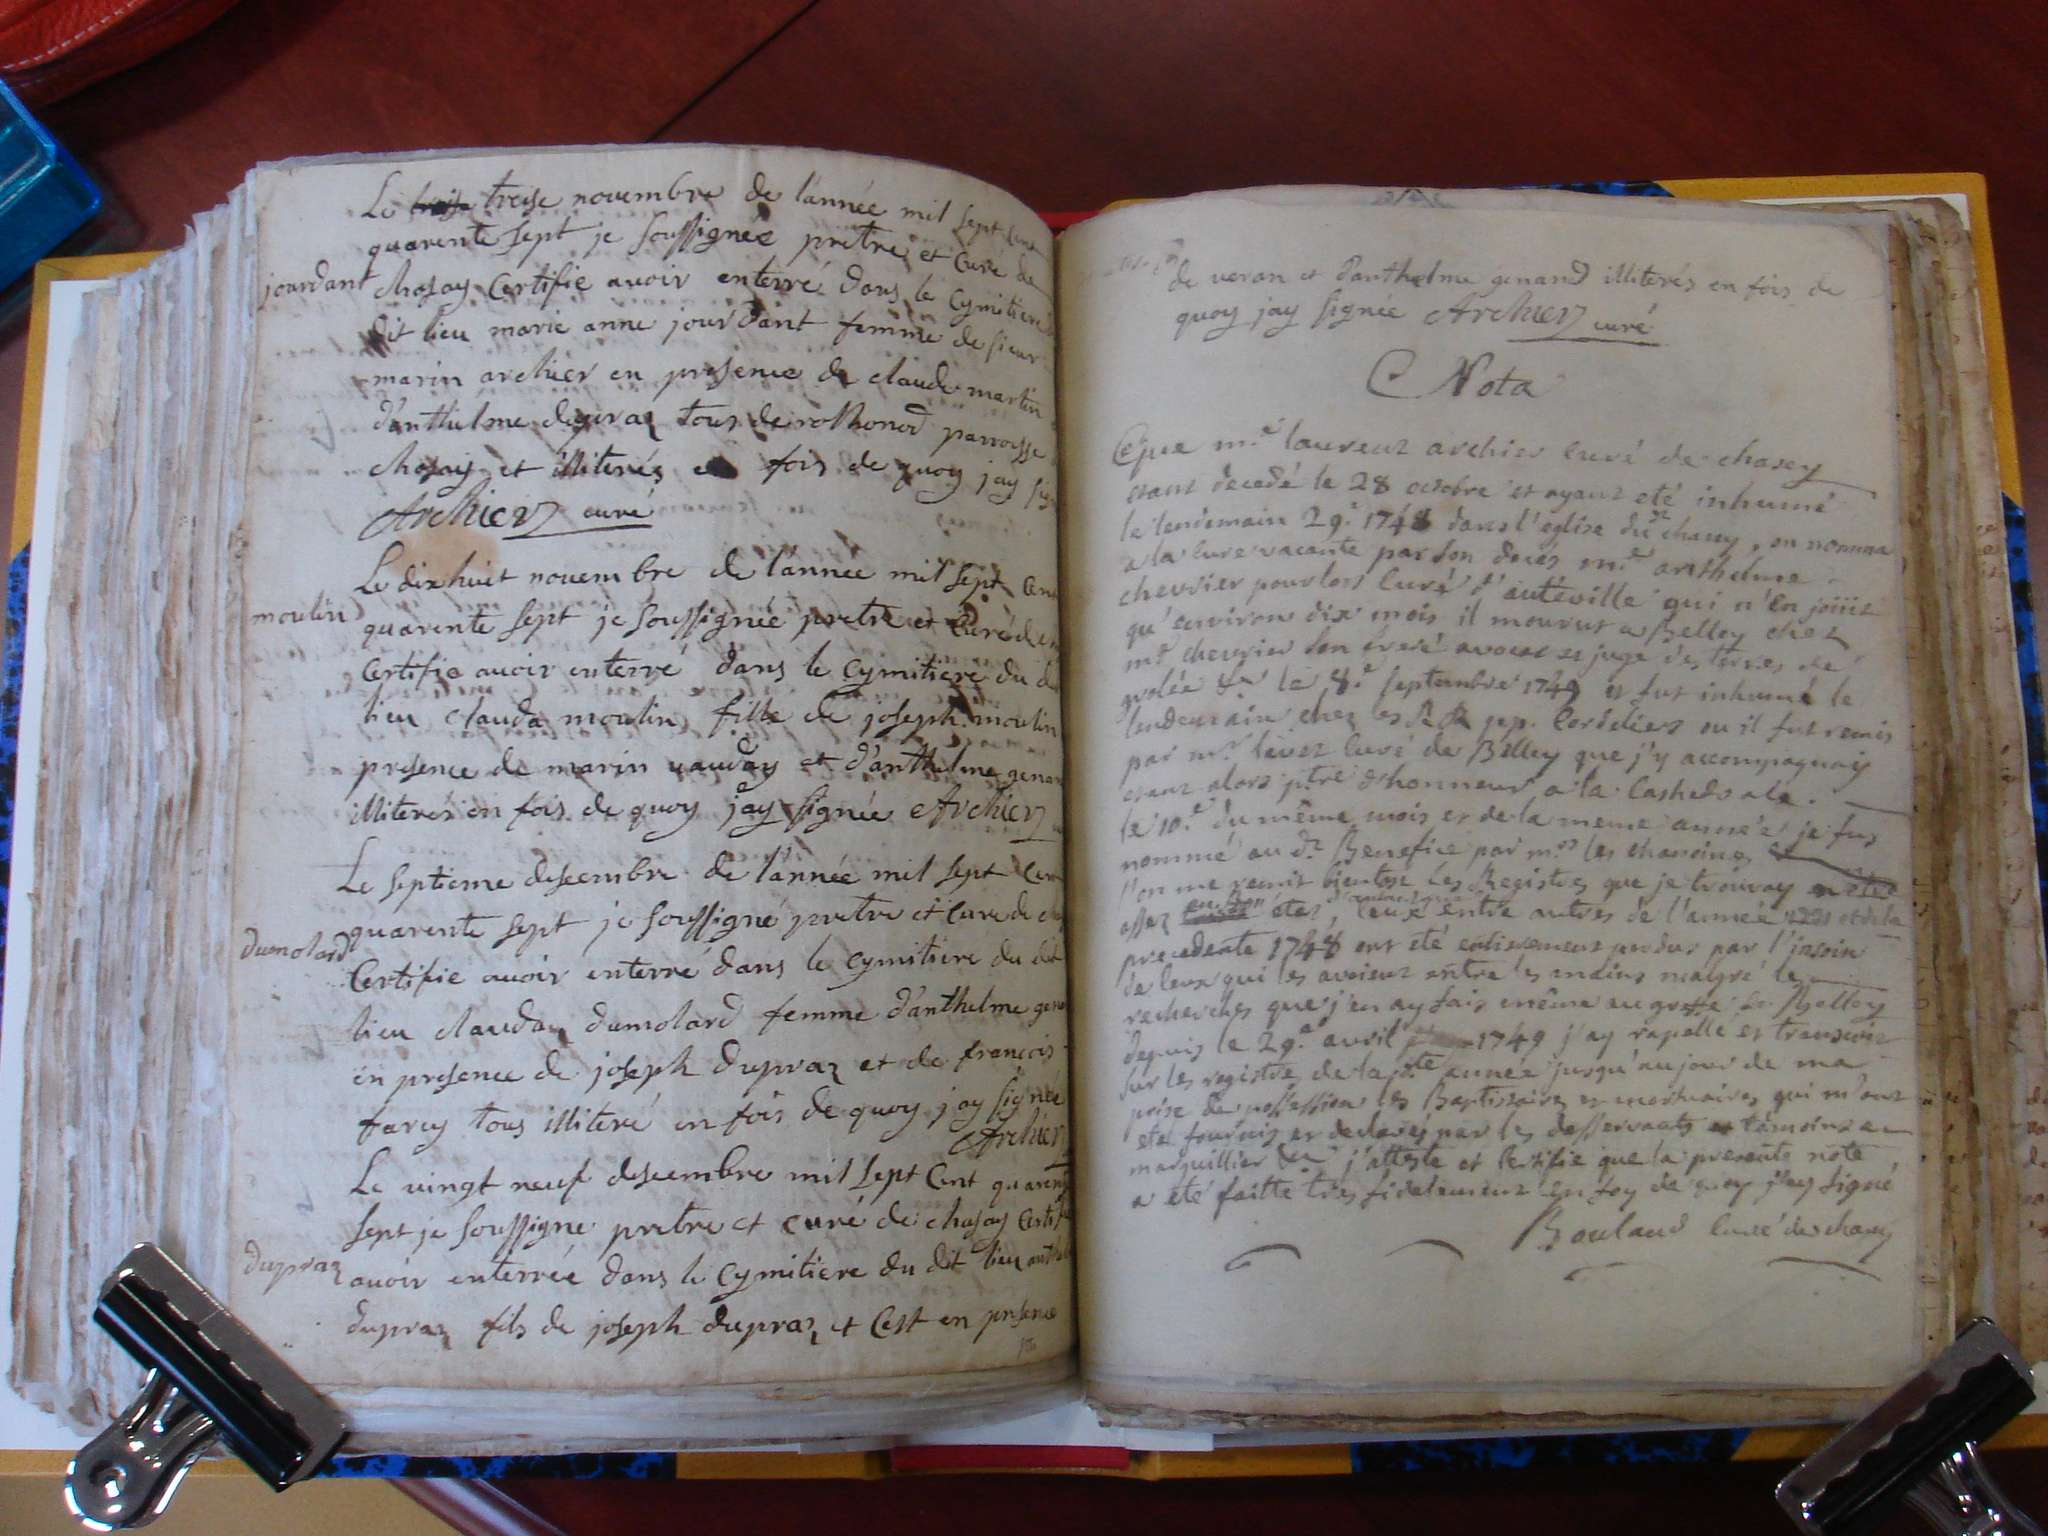 Le treise novembre de l'année mil sept cent
quarente sept je soussignée pretre et curé de
jourdant
chasay Certifie avoir enterré dans le Cymitiere
dit lieu marie anne jourdant femme de sieur
marin archier en presence de claude martin
d'anthelme dupraz tous de rothonod parroisse
chasay et illiterés en fois de quoy jay
Archier curé
Le dix huit novembre de l'année mil sept cent
moulin
quarente sept je soussignée pretre et curé de
Certifie avoir enterré dans le Cymitiere du
lieu clauda moulin fille de joseph moulin
presence de marin vauday et d'anthelme
illiterés en fois de quoy jay signée Archier
Le septieme desembre de l'année mil sept cent
quarente sept je soussigné pretre et Curé de
dumolard
Certifie avoir enterré dans le Cymitiere du dit
lieu clauda dumolard femme d'anthelme
en presence de joseph dupraz et de françois
farcy tous illiteré en fois de quoy jay signée
Archier
Le vingt neuf desembre mil sept Cent
sept je soussigne pretre et curé de chasay
dupraz
avoir enterrée dans le Cymitiere du dit lieu
dupraz fils de joseph dupraz et Cest en presence
de veran et d'anthelme genand illiterés en fois de
quoy jay signée Archier curé
Nota
que mre laurent archier Curé de chasey
etant decedé le 28 octobre et ayant eté inhumé
le lendemain 29e 1748 dans l'eglise du dt chasey, on nomma
a la cure vacante par son deces mre anthelme
chevrier pour lors Curé d'auteville qui n'en joüit
qu'environ dix mois il mourut a Belley chez
mr chevrier son frere avocat et juge des terres de
le 8e septembre 1749 et fut inhumé le
lendemain chez les R R pp. Cordeliers ou il fut remis
par mr Curé de Belley que j'y accompagnay
etant alors ptre d'honneur a la Cathedrale.
le 10e du même mois et de la meme année je fus
nommé au dt Benefice par mrs les chanoines et
l'on me remit bientost les Registres que je trouvay
assez ceux entre autres de l'année et de la
precedente 1748 ont eté entierement perdus par l'
de ceux qui les avoient entre les mains malgré les
recherches que j'en ay fait même au greffe de Belley
depuis le 29e avril 1749 j'ay rapellé et transcrit
sur les registre de la pnte année jusqu'au jour de ma
prise de possession les Baptistaires et mortuaires qui m'ont
eté fournis et declarés par les desservants et
marguillier j'atteste et Certifie que la presente note
a eté faitte tres fidelement en foy de quoy j'ay signé
Bouland Curé de chasey